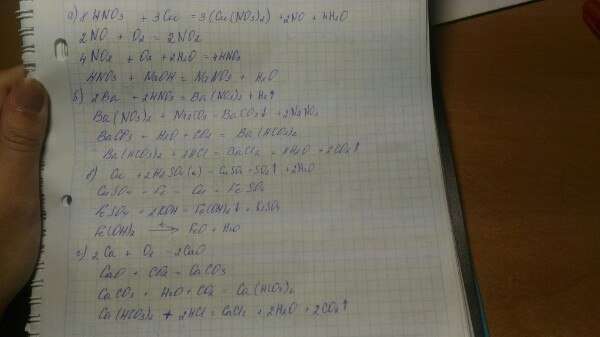 а) 8HNO3 + 3Cu = 3(Cu(NO3)2) + 2NO + 4H2O
2NO + O2 = 2NO2
4NO2 + O2 + 2H2O = 4HNO3
HNO3 + NaOH = NaNO3 + H2O
б) Ba + 2HNO3 = Ba(NO3)2 + H2↑
Ba(NO3)2 + Na2CO3 = BaCO3↓ + 2NaNO3
BaCO3 + H2O + CO2 = Ba(HCO3)2
Ba(HCO3)2 + 2HCl = BaCl2 + 2H2O + 2CO2↑
в) Cu + 2H2SO4(к) = CuSO4 + SO2↑ + 2H2O
CuSO4 + Fe = Cu + FeSO4
FeSO4 + 2KOH = Fe(OH)2↓ + K2SO4
Fe(OH)2 → FeO + H2O
г) 2Ca + O2 = 2CaO
CaO + CO2 = CaCO3
CaCO3 + H2O + CO2 = Ca(HCO3)2
Ca(HCO3)2 + 2HCl = CaCl2 + 2H2O + 2CO2↑